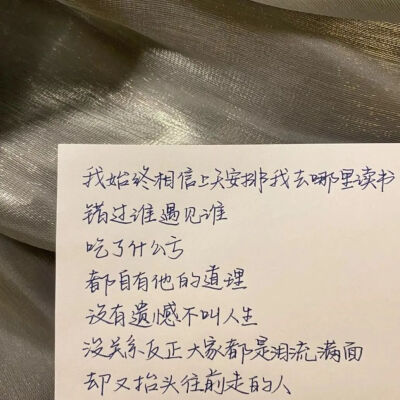 我始终相信上天安排我去哪里读书
错过谁遇见谁
吃了什么亏
都自有他的道理
没有遗憾不叫人生
没关系反正大家都是泪流满面
却又抬头往前走的人